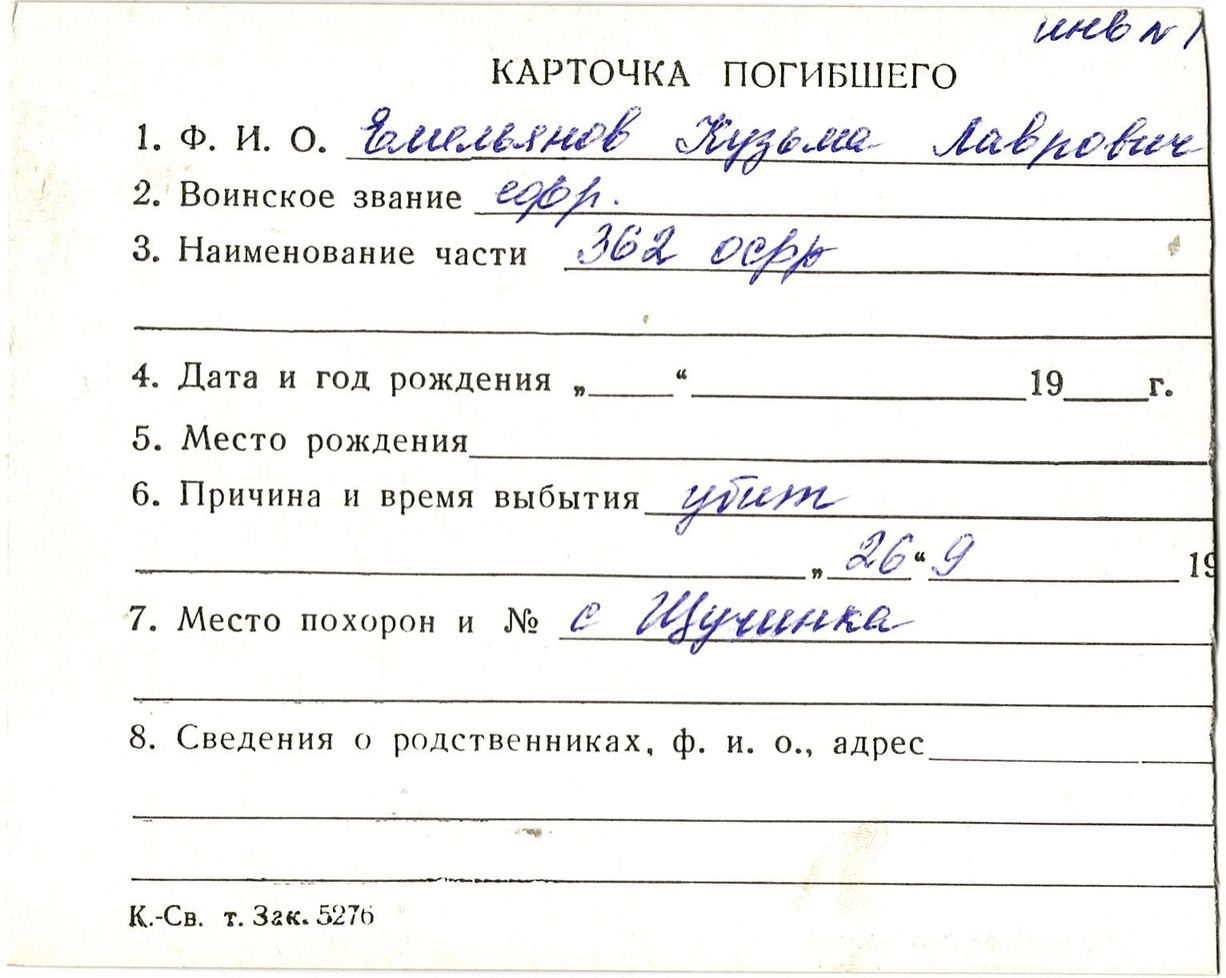 инв № 1
КАРТОЧКА ПОГИБШЕГО
1. Ф. И. О. Емельянов Кузьма Лаврович
2. Воинское звание ефр.
3. Наименование части 362 осрр
4. Дата и год рождения „ “ 19 г.
5. Место рождения
6. Причина и время выбытия убит
„ 26 “ 9 19
7. Место похорон и № с Щучинка
8. Сведения о родственниках, ф. и. о., адрес
К.-Св. т. Зак. 5276